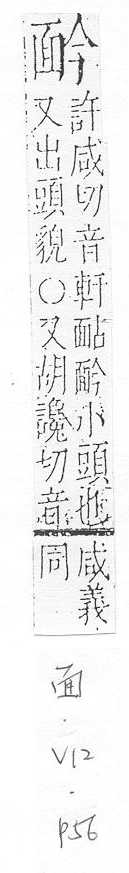 許咸切音軒 小頭也
又出頭貌〇又胡讒切音
咸義
同
面
·
V12
·
P56